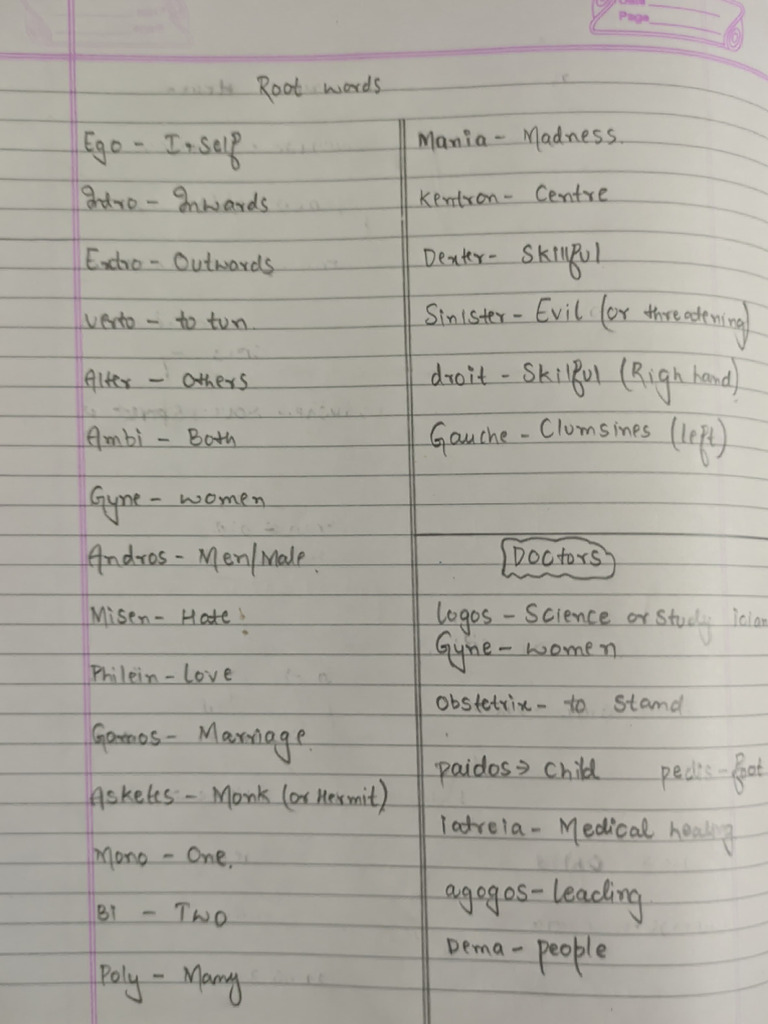 Page
Root words
Ego - I, self
Intro - Inwards
Extro - Outwards
verto - to tun
Alter - others
Ambi - Both
Gyne - women
Andros - Men/Male.
Misen - Hate
Philein - Love
Gamos - Marriage
Asketes - Monk (or Hermit)
Mono - One.
Bi - Two
Poly - Many
Mania - Madness.
Kentron - Centre
Dexter - Skillful
Sinister - Evil (or threatening)
droit - Skilful (Righ hand)
Gauche - Clumsines (left)
Doctors
logos - Science or Study ician
Gyne - women
Obstetrix - to stand
paidos → child pedis - foot
iatreia - Medical healing
agogos - leading
Dema - people